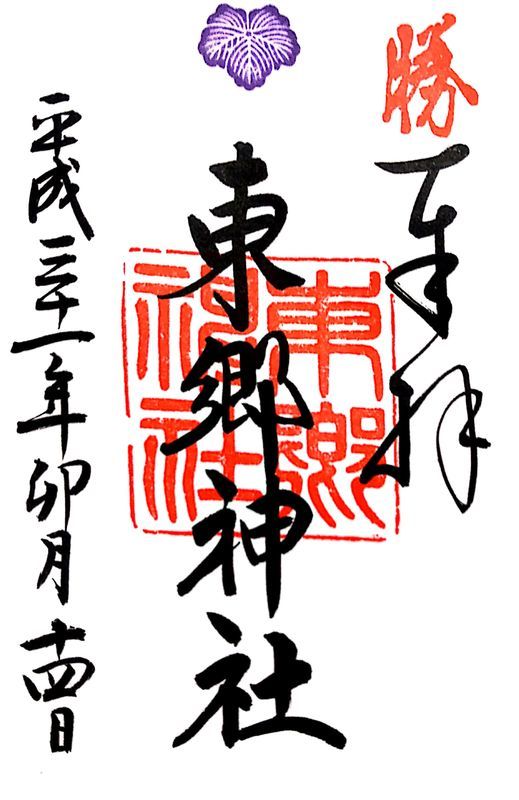 勝
奉拝
東郷神社
東郷神社
平成三十一年卯月十四日